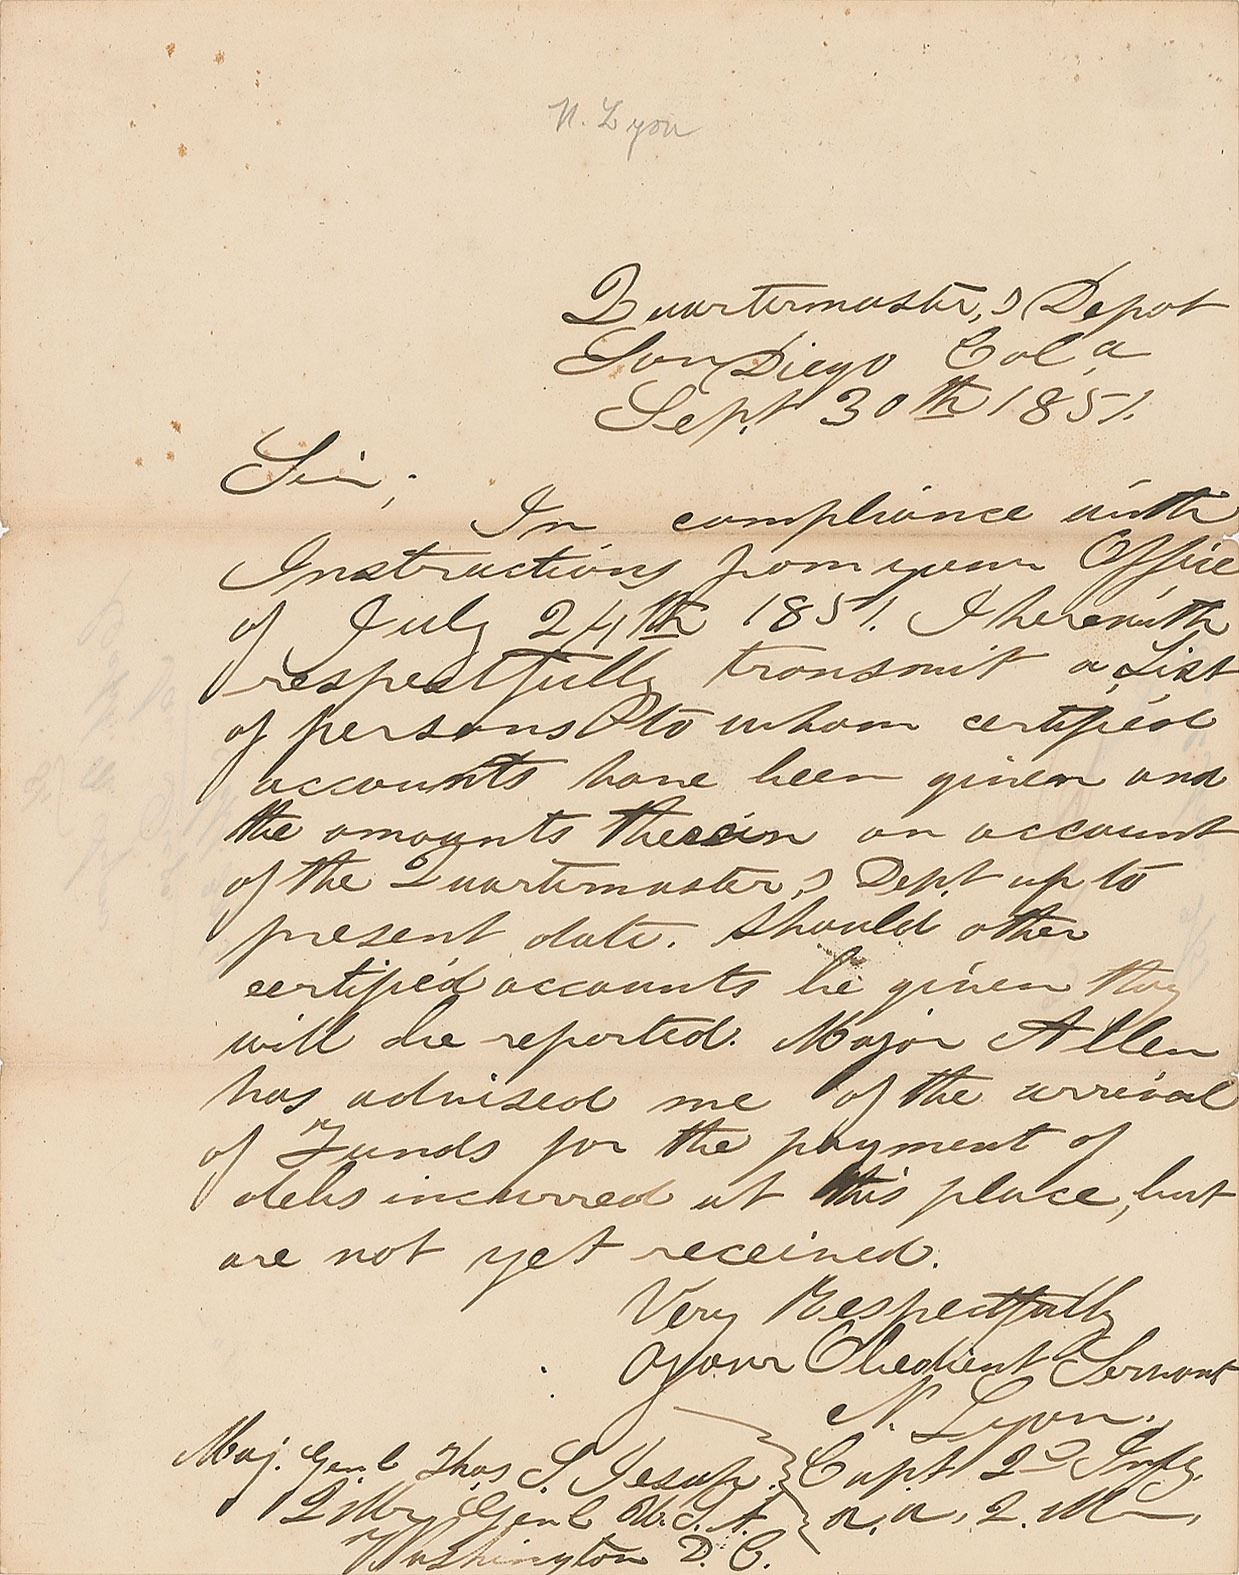 N. Lyon
Quartermaster,s Depot
San Diego Cal a
Sept 30th 1851.
Sir;
In compliance with
Instructions from your Office
of July 24th 1851. I herewith
respectfully transmit a List
of persons to whom certified
accounts have been given and
the amounts therein on account
of the Quartermaster,s Dept. up to
present date. Should other
certified accounts be given they
will be reported. Major Allen
has advised me of the arrival
of Funds for the payment of
debs incurred at this place, but
are not yet received.
Very Respectfully
Your Obedient Servant
N. Lyon.
Capt 2d Infy.
A. A. Q. M.
Maj. Genl Thos S. Jesup.
Q Mr Genl U. S. A.
Washington D. C.